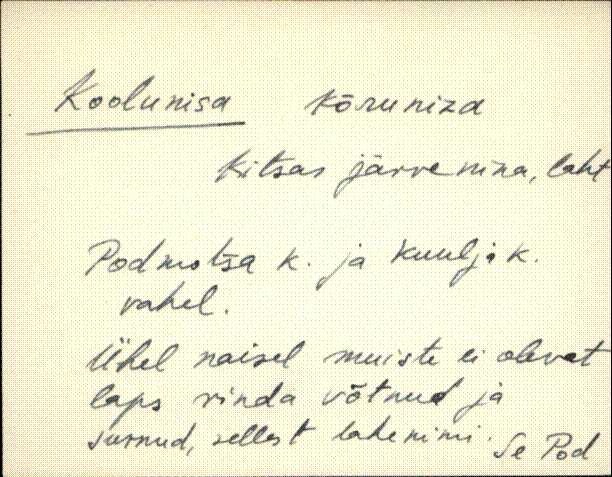 Koolunisa kõruniza
kitsas järvenina, laht
Podmotsa k. ja Kuulja k.
vahel.
Ühel naisel muiste ei olevat
laps rinda võtnud ja
surnud, sellest lahenimi.
Se Pod